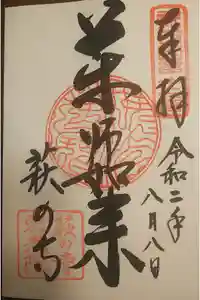 奉拝
令和二年
八月八日
薬師如来
萩の寺